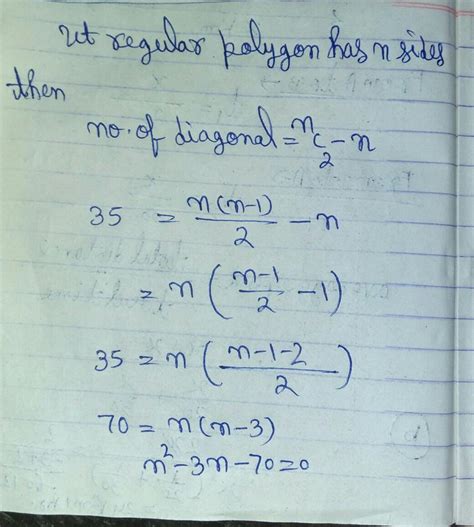 let regular polygon has n sides
then
no. of diagonal = ⁿC₂ - n
35 = n(n-1)/2 - n
= n ( (n-1)/2 - 1 )
35 = n ( (n-1-2)/2 )
70 = n(n-3)
n² - 3n - 70 = 0